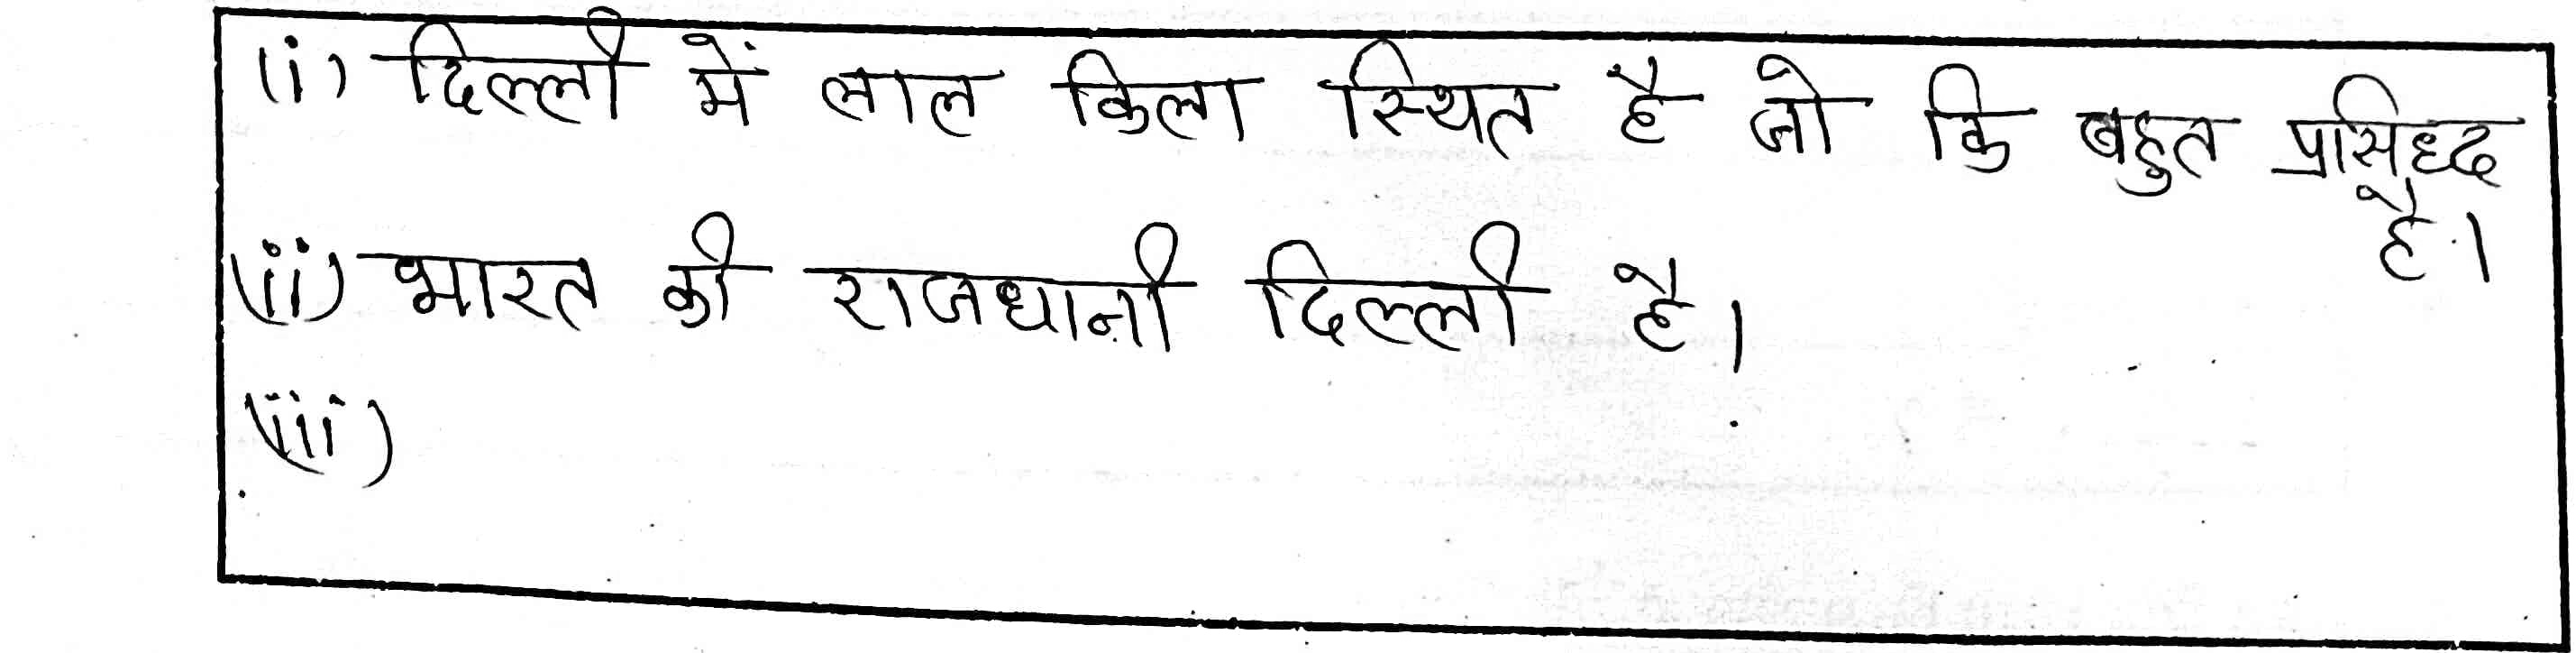 (i) दिल्ली में लाल किला स्थित है जो कि बहुत प्रसिध्द
है।
(ii) भारत की राजधानी दिल्ली है।
(iii)